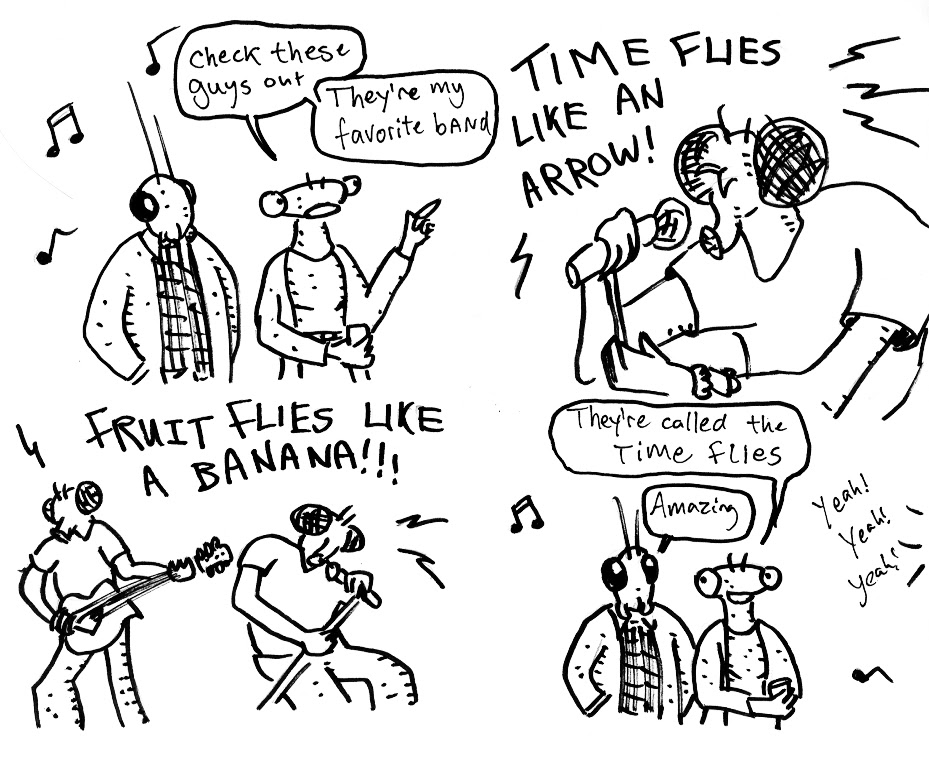 check these
guys out
They're my
favorite bAND
TIME FLIES
LIKE AN
ARROW!
FRUIT FLIES LIKE
A BANANA!!!
They're called the
Time flies
Amazing
Yeah!
Yeah!
yeah!